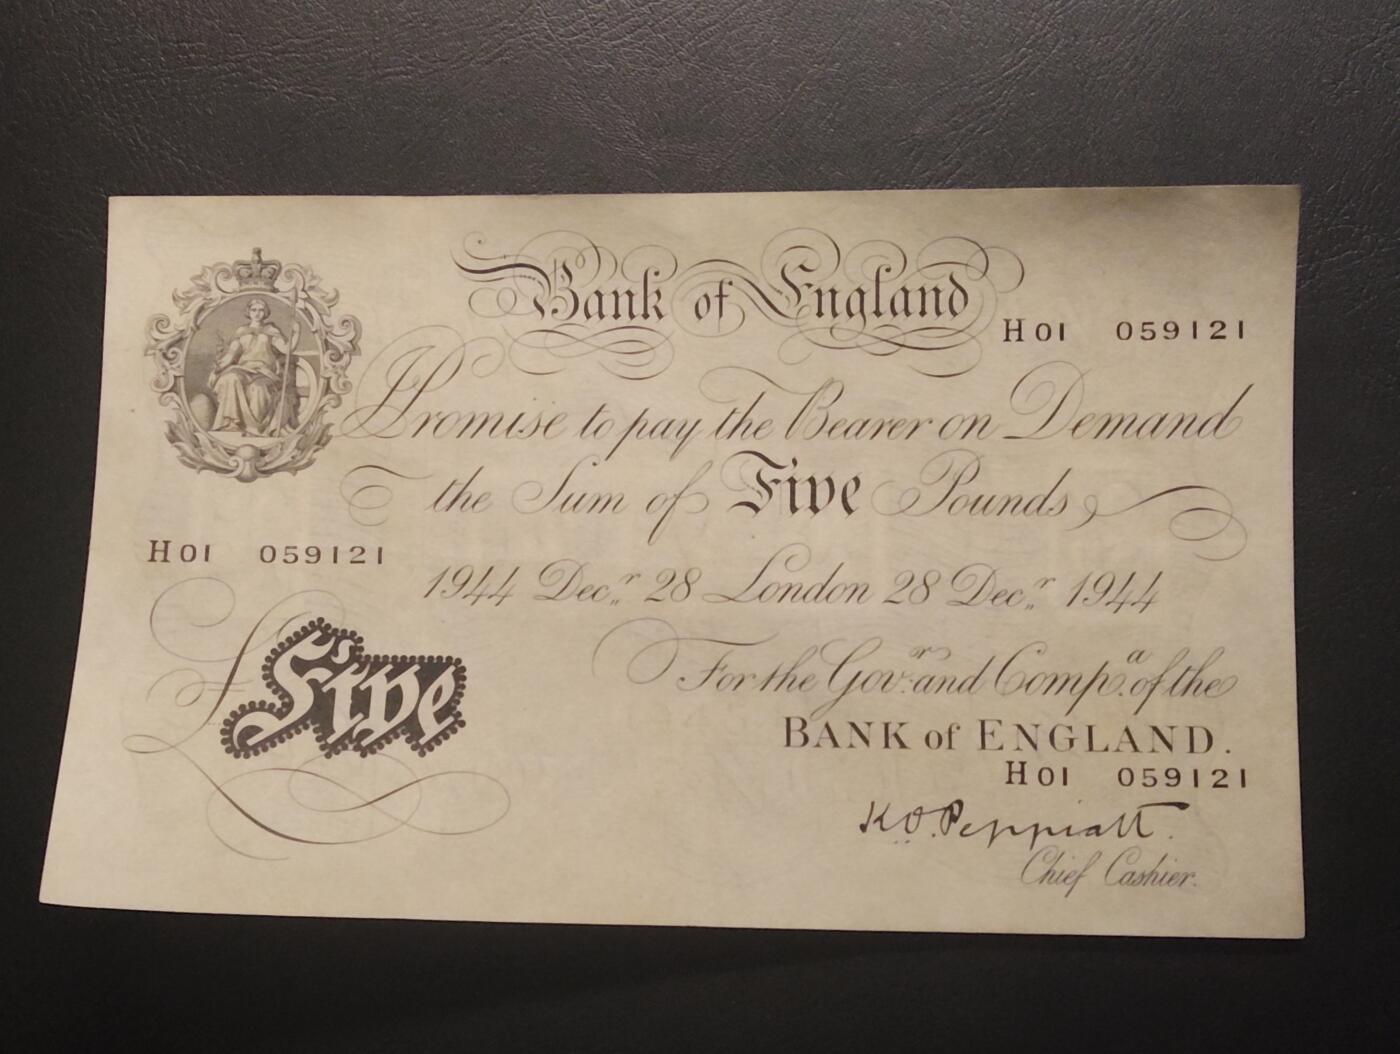 Bank of England
H01 059121
I Promise to pay the Bearer on Demand
the Sum of Five Pounds
H01 059121
1944 Dec.r 28 London 28 Dec.r 1944
£Five
For the Gov.r and Comp.a of the
BANK of ENGLAND.
H01 059121
K.O. Peppiatt.
Chief Cashier.